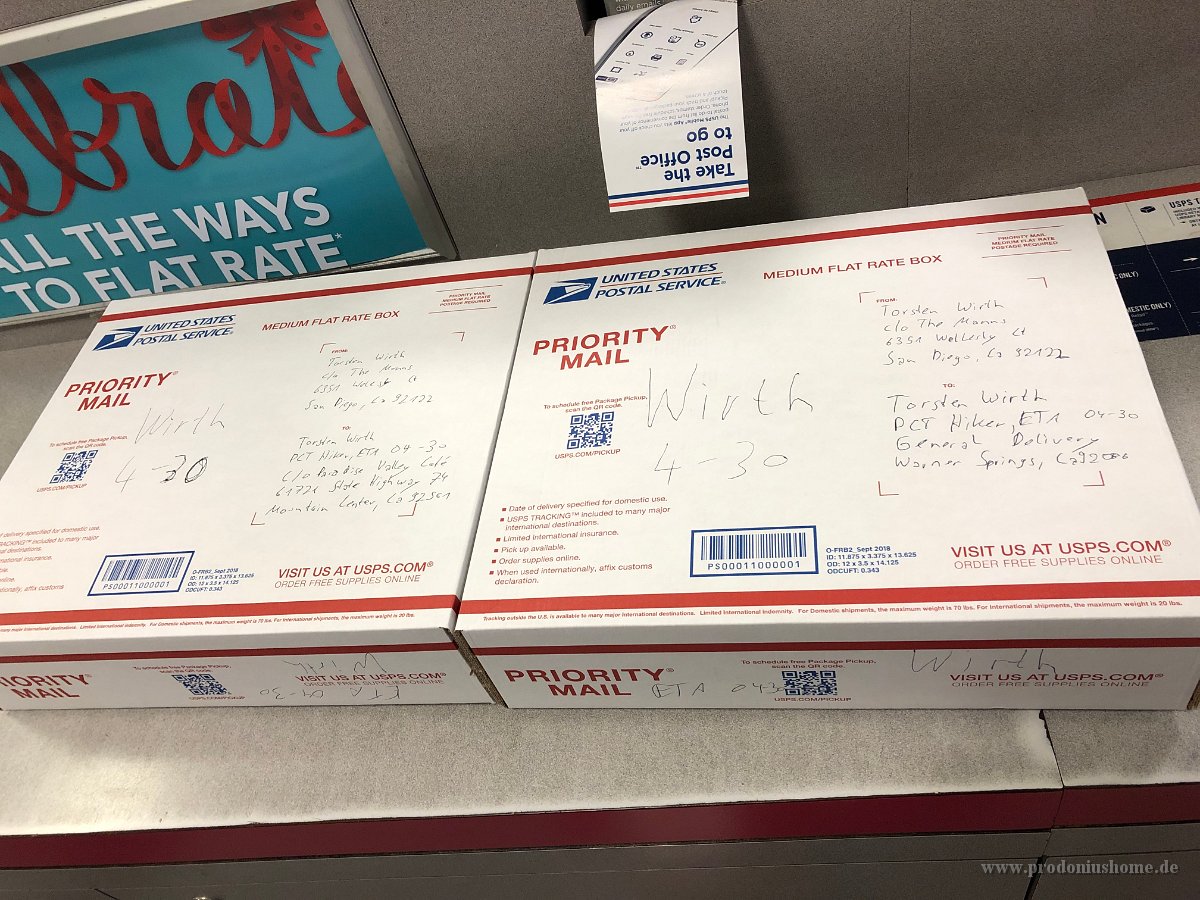 ebrate
ALL THE WAYS
TO FLAT RATE*
daily emails
Take the
Post Office™
to go
The USPS Mobile® App lets you check off your
UNITED STATES
POSTAL SERVICE®
MEDIUM FLAT RATE BOX
PRIORITY MAIL
MEDIUM FLAT RATE
POSTAGE REQUIRED
PRIORITY®
MAIL
FROM:
Torsten Wirth
c/o The Manns
6351
Ct
San Diego, Ca 92122
Wirth
4-30
To schedule free Package Pickup,
scan the QR code.
USPS.COM/PICKUP
TO:
Torsten Wirth
PCT Hiker, ETA 04-30
c/o Paradise Valley Café
61721 State Highway 74
Mountain Center, Ca 92561
of delivery specified for domestic use.
TRACKING™ included to many major
international destinations.
international insurance.
nally, affix customs
PS00011000001
O-FRB2_Sept 2018
ID: 11.875 x 3.375 x 13.625
OD: 12 x 3.5 x 14.125
ODCUFT: 0.343
VISIT US AT USPS.COM®
ORDER FREE SUPPLIES ONLINE
many major international destinations. Limited international indemnity. For Domestic shipments, the maximum weight is 70 lbs. For international shipments, the maximum weight is 20 lbs.
PRIORITY®
MAIL
To schedule free Package Pickup,
scan the QR code.
USPS.COM/PICKUP
Wirth
ETA 04-30
VISIT US AT USPS.COM®
ORDER FREE SUPPLIES ONLINE
UNITED STATES
POSTAL SERVICE®
MEDIUM FLAT RATE BOX
PRIORITY MAIL
MEDIUM FLAT RATE
POSTAGE REQUIRED
PRIORITY®
MAIL
FROM:
Torsten Wirth
c/o The Manns
6351 Ct
San Diego, Ca 92122
Wirth
4-30
To schedule free Package Pickup,
scan the QR code.
USPS.COM/PICKUP
TO:
Torsten Wirth
PCT Hiker, ETA 04-30
General Delivery
Warner Springs, Ca 92086
Date of delivery specified for domestic use.
USPS TRACKING™ included to many major
international destinations.
Limited international insurance.
Pick up available.
Order supplies online.
When used internationally, affix customs
declaration.
PS00011000001
O-FRB2_Sept 2018
ID: 11.875 x 3.375 x 13.625
OD: 12 x 3.5 x 14.125
ODCUFT: 0.343
VISIT US AT USPS.COM®
ORDER FREE SUPPLIES ONLINE
Tracking outside the U.S. is available to many major international destinations. Limited international indemnity. For Domestic shipments, the maximum weight is 70 lbs. For international shipments, the maximum weight is 20 lbs.
PRIORITY®
MAIL
ETA 0430
To schedule free Package Pickup,
scan the QR code.
USPS.COM/PICKUP
Wirth
VISIT US AT USPS.COM®
ORDER FREE SUPPLIES ONLINE
USPS T
ONLY)
DOMESTIC ONLY)
www.prodoniushome.de